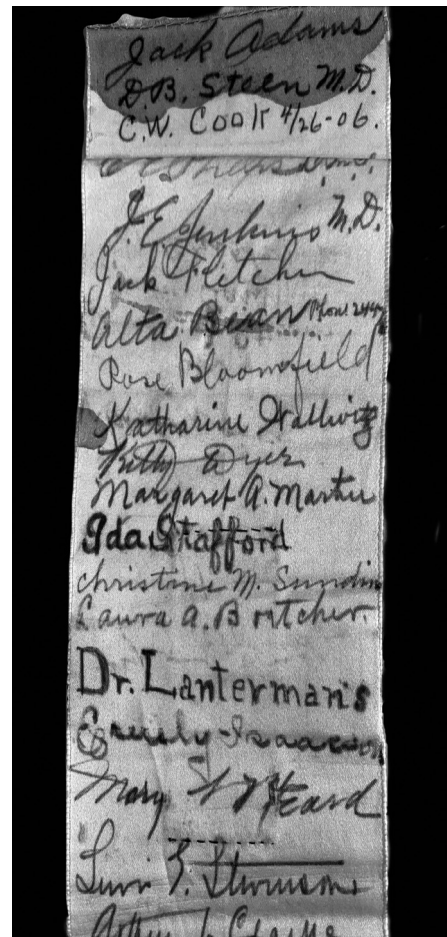 Jack Adams
D.B. Steen M.D.
C.W. Cook 4/26-06.
J.E. Jenkins M.D.
Jack Fletcher
Alta Bean Phone 244
Rose Bloomfield
Katharine Wallwitz
Kitty Dyer
Margaret A. Martin
Ida Stafford
Christine M. Sundin
Laura A. Britcher.
Dr. Lanterman's
Emily Isaacson
Mary Heard
Stevenson